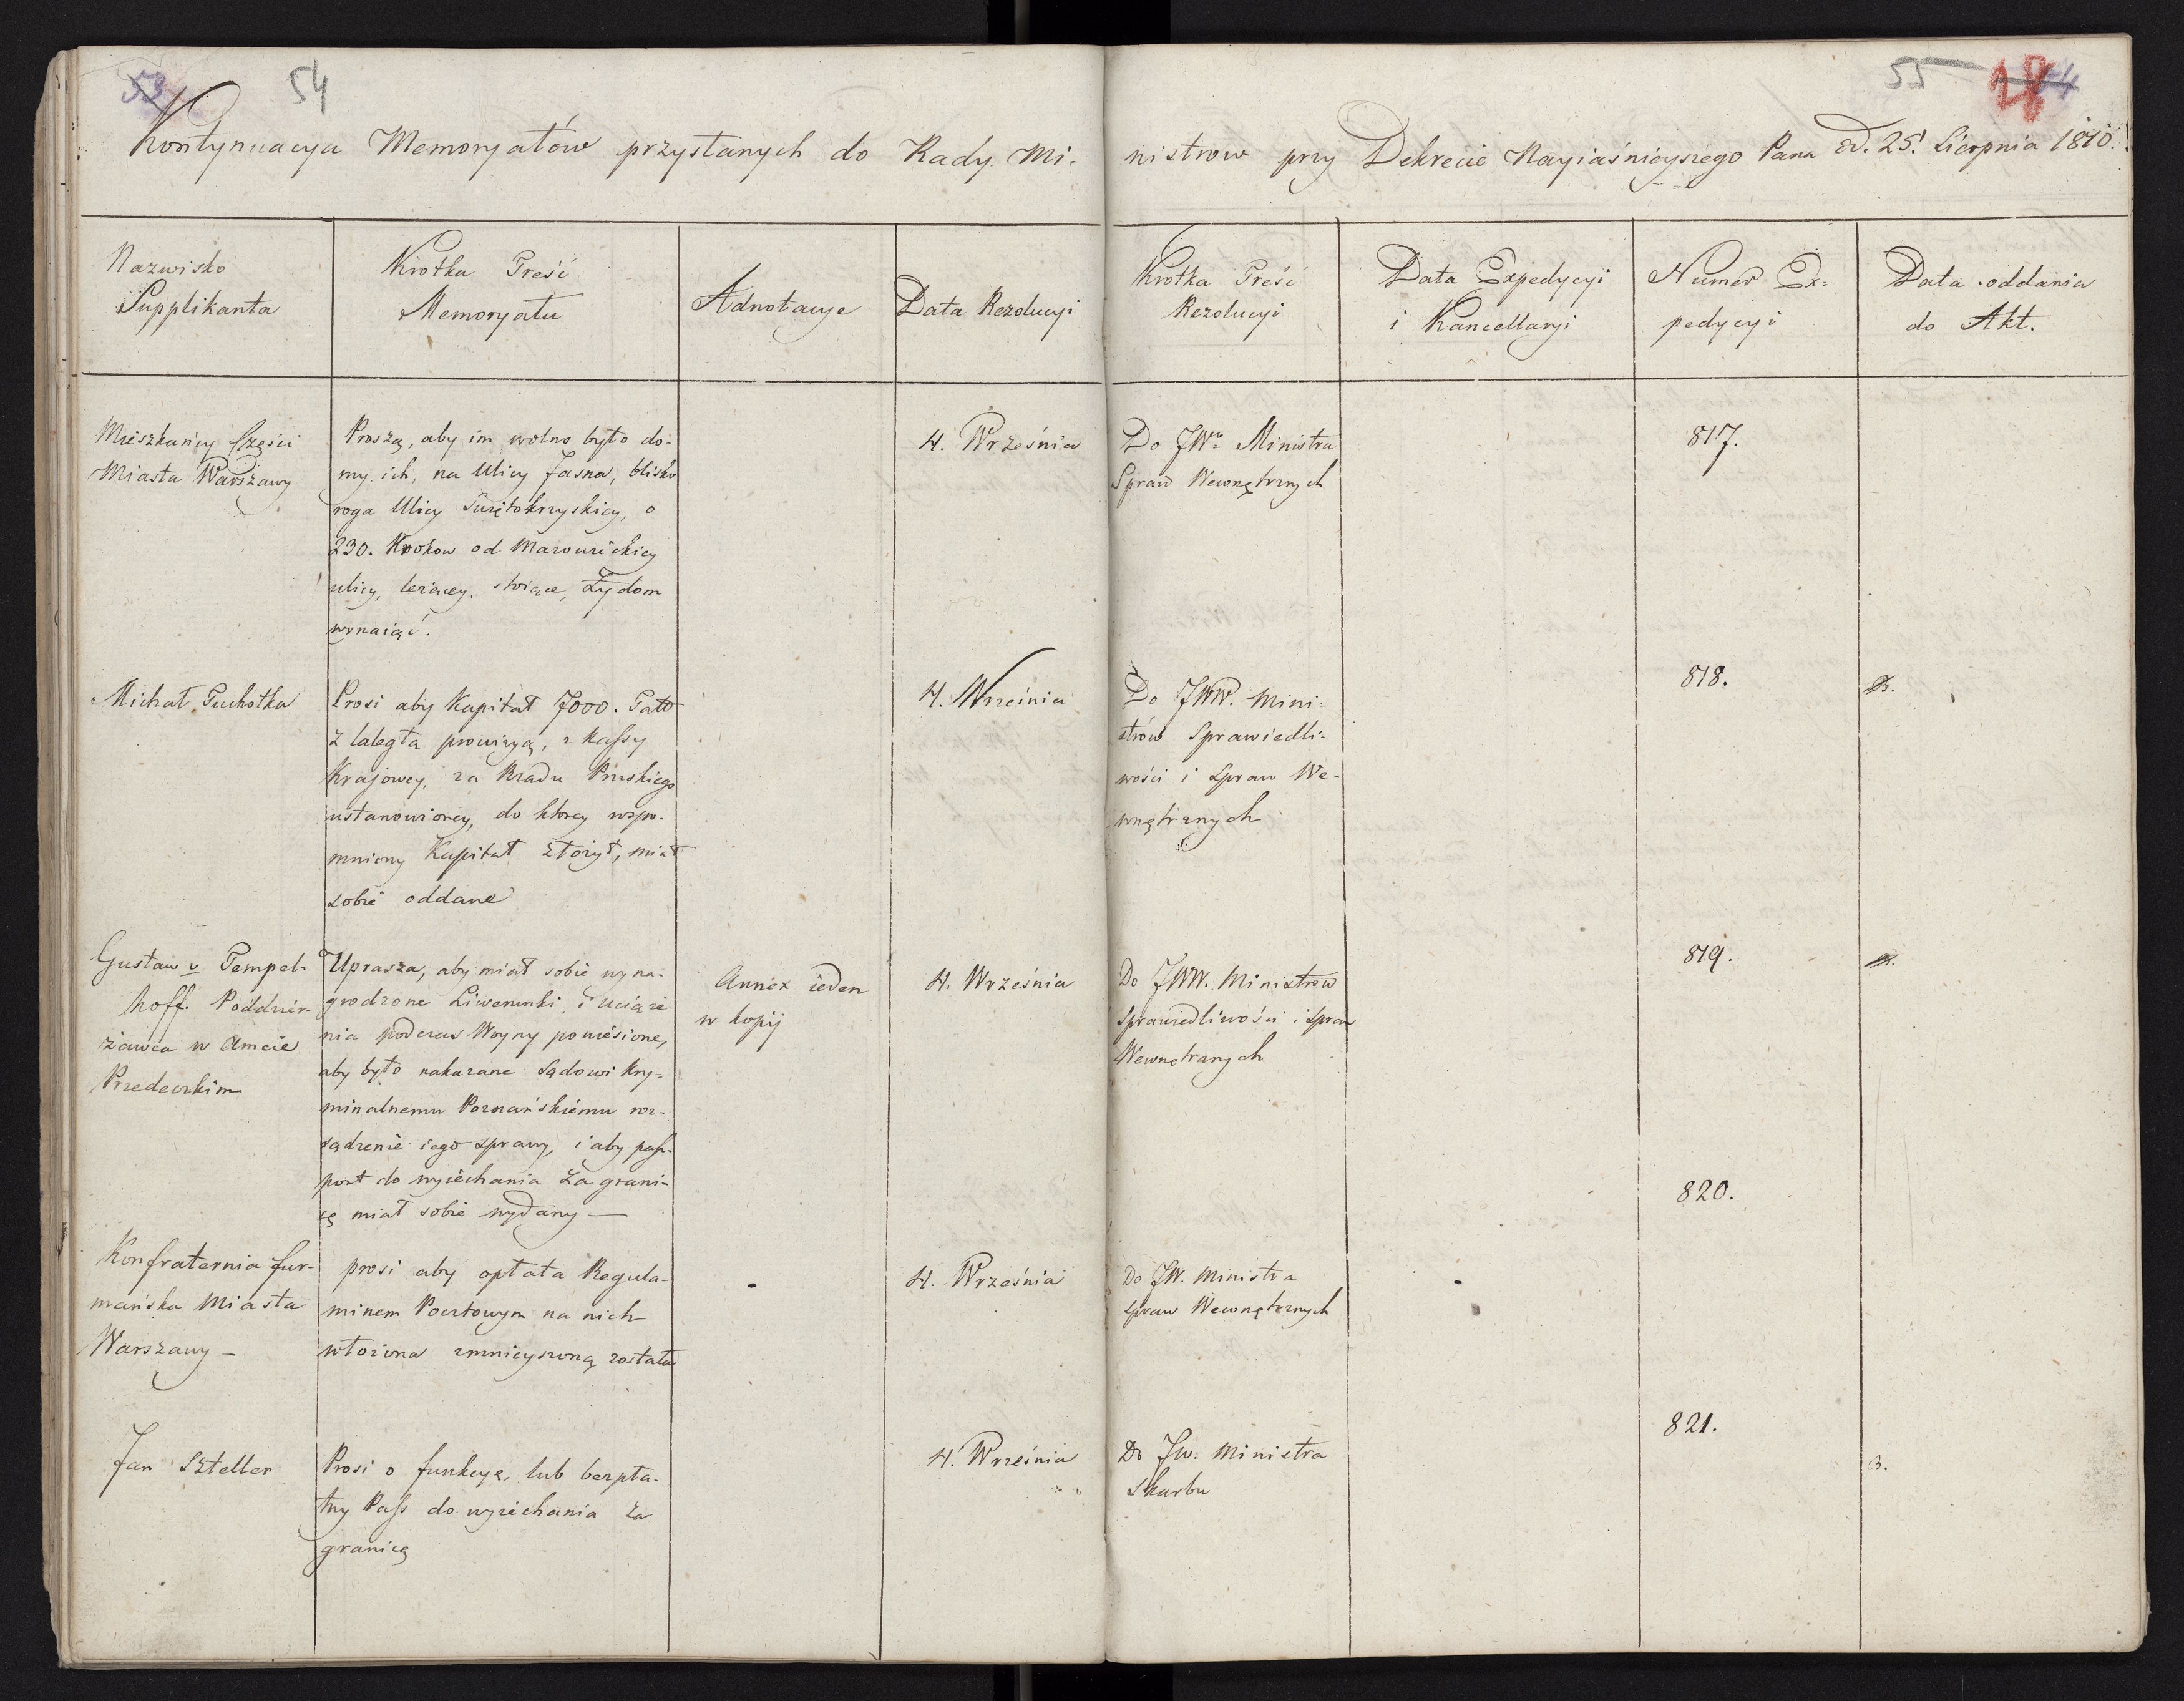 53 54
55 28 54
Kontynuacya Memoryałów przysłanych do Rady Mi- nistrow przy Dekrecie Nayiaśnieyszego Pana d. 25. Sierpnia 1810.
Nazwisko
Supplikanta
Krotka Treść
Memoryału
Adnotacye
Data Rezolucyi
Krotka Treść
Rezolucyi
Data Expedycyi
i Kancellaryi
Numer Ex-
pedycyi
Data oddania
do Akt.
Mieszkańcy Części
Miasta Warszawy
Proszą, aby im wolno było do-
my ich, na Ulicy Jasna, blisko
roga Ulicy Świętokrzyskiey, o
230. Krokow od Mazowieckiey
ulicy, leżącey, stoiące, Żydom
wynaiąć.
4. Września
Do JWo Ministra
Spraw Wewnętrznych
817.
Michał Puchotka
Prosi aby Kapitał 7000. Tall
z zaległą prowizyą, z Kassy
Krajowey, za Rządu Pruskiego
ustanowioney, do ktorey wspo-
mniony Kapitał złożył, miał
sobie oddane
4. Wrześnie
Do JWW. Mini-
strów Sprawiedli-
wości i Spraw We-
wnętrznych
818.
Gustaw v Tempel-
hoff. Poddzier-
żawca w Amcie
Przedeczkim
Uprasza, aby miał sobie wyna-
grodzone Liwerunki, i uciąże
nia podczas Woyny poniesione,
aby było nakazane Sądowi Kry-
minalnemu Poznańskiemu roz-
sądzenie iego sprawy, i aby pasz-
port do wyiechania za grani-
cę miał sobie wydany —
Annex ieden
w kopij
4. Września
Do JWW. Ministrow
Sprawiedliwości i Spraw
Wewnętrznych
819.
Konfraternia fur-
mańska Miasta
Warszawy —
prosi aby opłata Regula-
minem Pocztowym na nich
włożona zmnieyszoną została
4. Września
Do JW. Ministra
Spraw Wewnętrznych
820.
Jan Szteller
Prosi o funkcyą, lub bezpła-
tny Pass do wyiechania za
granicę
4. Września
Do JW. Ministra
Skarbu
821.